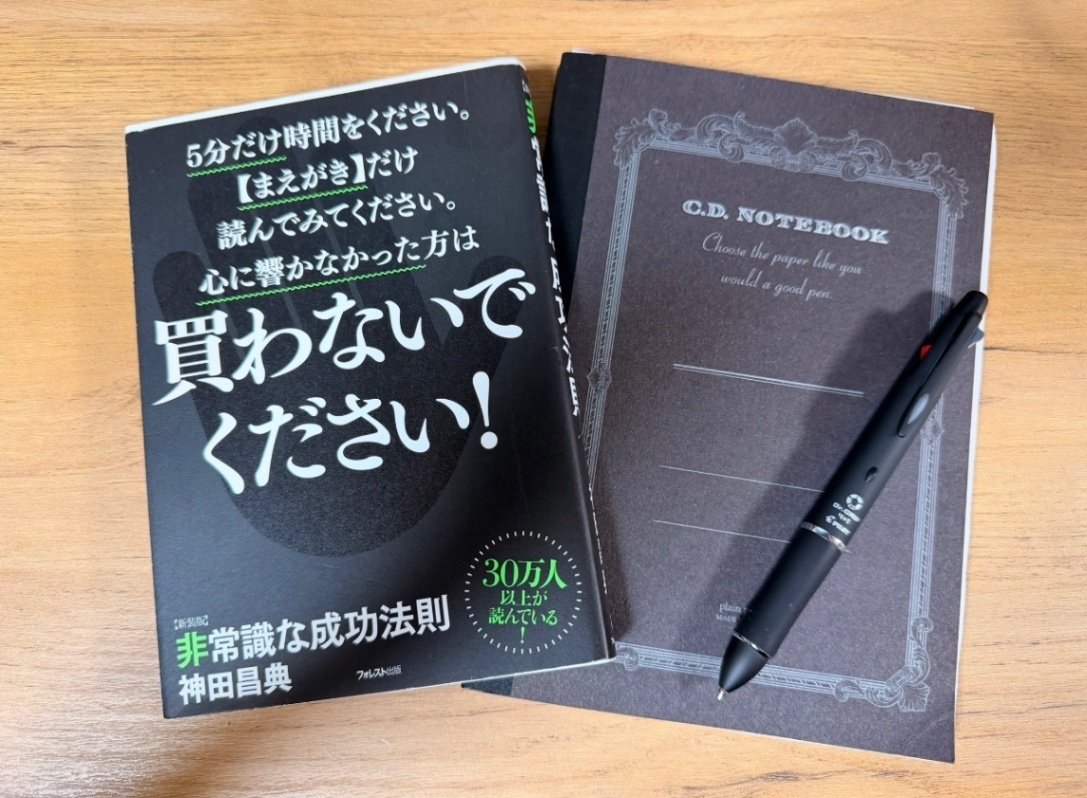 5分だけ時間をください。
【まえがき】だけ
読んでみてください。
心に響かなかった方は
買わないで
ください!
30万人
以上が
読んでいる
!
【新装版】
非常識な成功法則
神田昌典
フォレスト出版
C.D. NOTEBOOK
Choose the paper like you
would a good pen.
plain
MADE
Dr. GRIP
4+1
PILOT